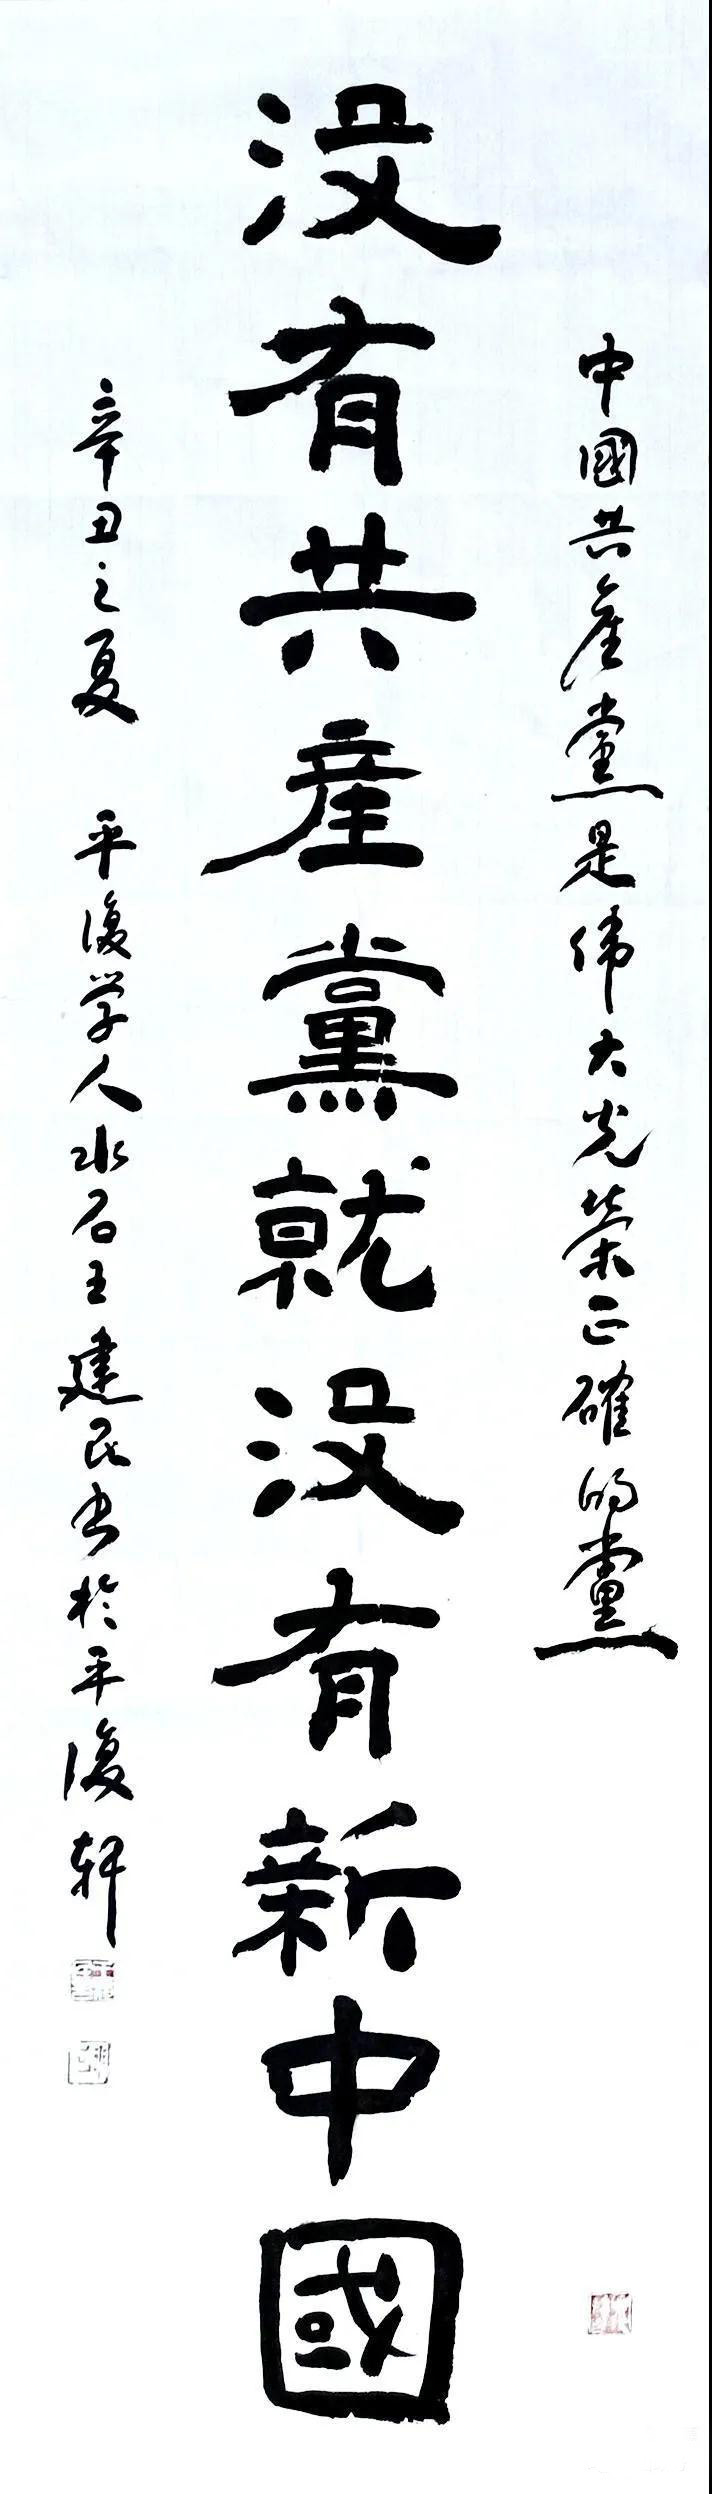 中國共產党是伟大光荣正確的黨
没有共產黨就没有新中國
辛丑之夏 平復学人水石王建民书於平復轩